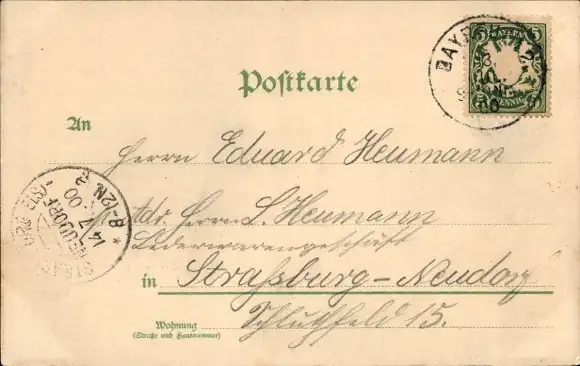 BAYERN
5 5
PFENNIG
Postkarte
An
Herrn Eduard Heumann
Adr. Herrn L. Heumann
Lederwarengeschäft
in Straßburg-Neudorf
Wohnung
(Straße und Hausnummer)
Schluthfeld 15.
NEUDORF
14 7 00
8-12N